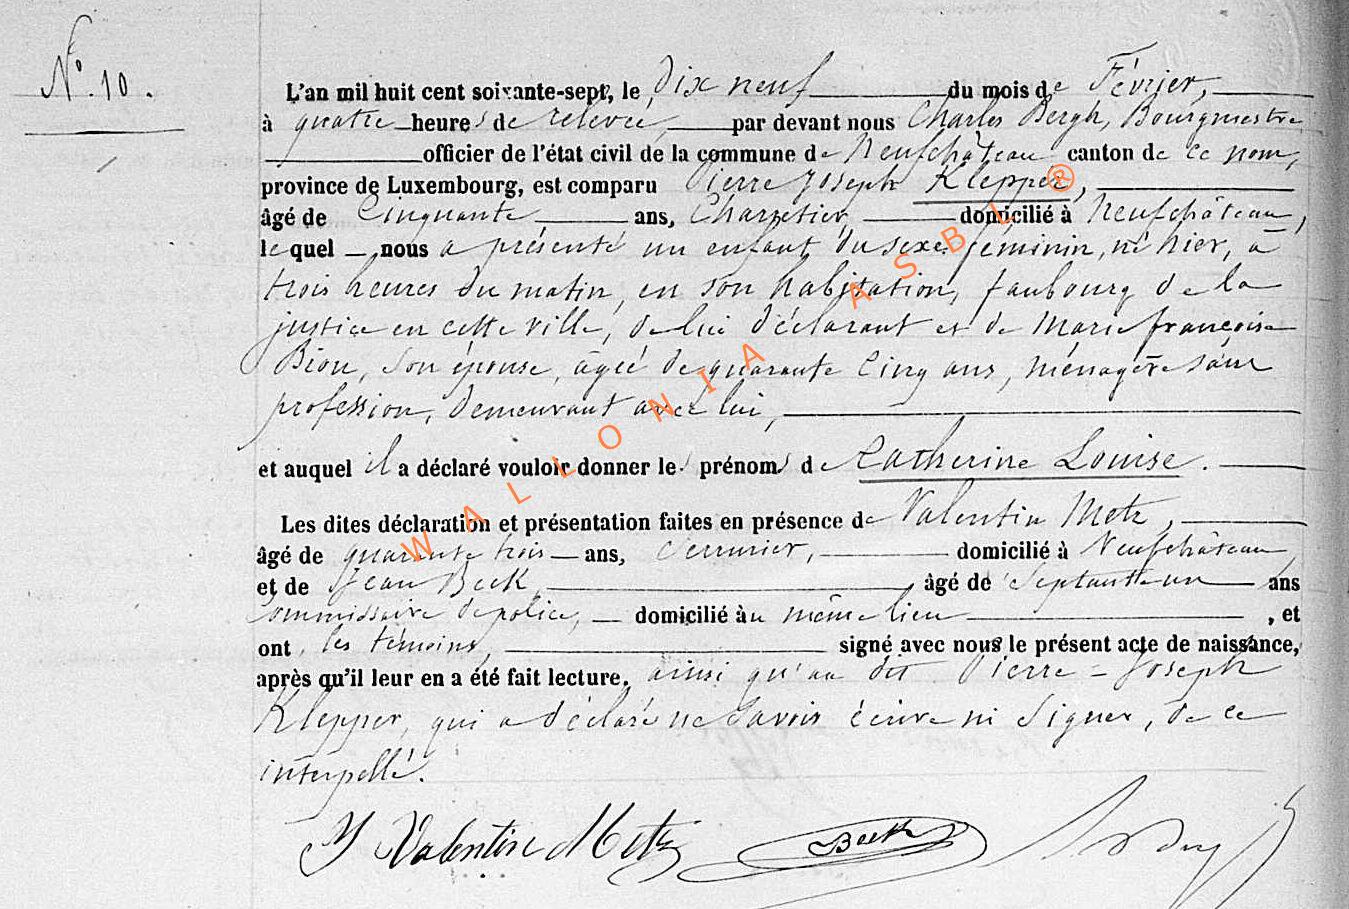 N.° 10.
L'an mil huit cent soixante-sept, le Dix neuf du mois de Février,
à quatre heures de relevée, par devant nous Charles Bergh, Bourgmestre
officier de l'état civil de la commune de Neufchâteau canton de ce nom,
province de Luxembourg, est comparu Pierre Joseph Klepper,
âgé de Cinquante ans, Charretier, domicilié à Neufchâteau,
lequel nous a présenté un enfant du sexe féminin, né hier, à
trois heures du matin, en son habitation, faubourg de la
justice en cette ville, de lui déclarant et de Marie françoise
Bion, son épouse, âgée de quarante cinq ans, ménagère sans
profession, demeurant avec lui,
et auquel il a déclaré vouloir donner les prénoms de Catherine Louise.
Les dites déclaration et présentation faites en présence de Valentin Metz,
âgé de quarante trois ans, Serrurier, domicilié à Neufchâteau,
et de Jean Beck, âgé de Septante un ans
Commissaire de police, domicilié au même lieu, et
ont les témoins, signé avec nous le présent acte de naissance,
après qu'il leur en a été fait lecture. ainsi qu'au dit Pierre-Joseph
Klepper, qui a déclaré ne savoir écrire ni signer, de ce
interpellé.
Valentin Metz Beck
WALLONIA ASBL ®